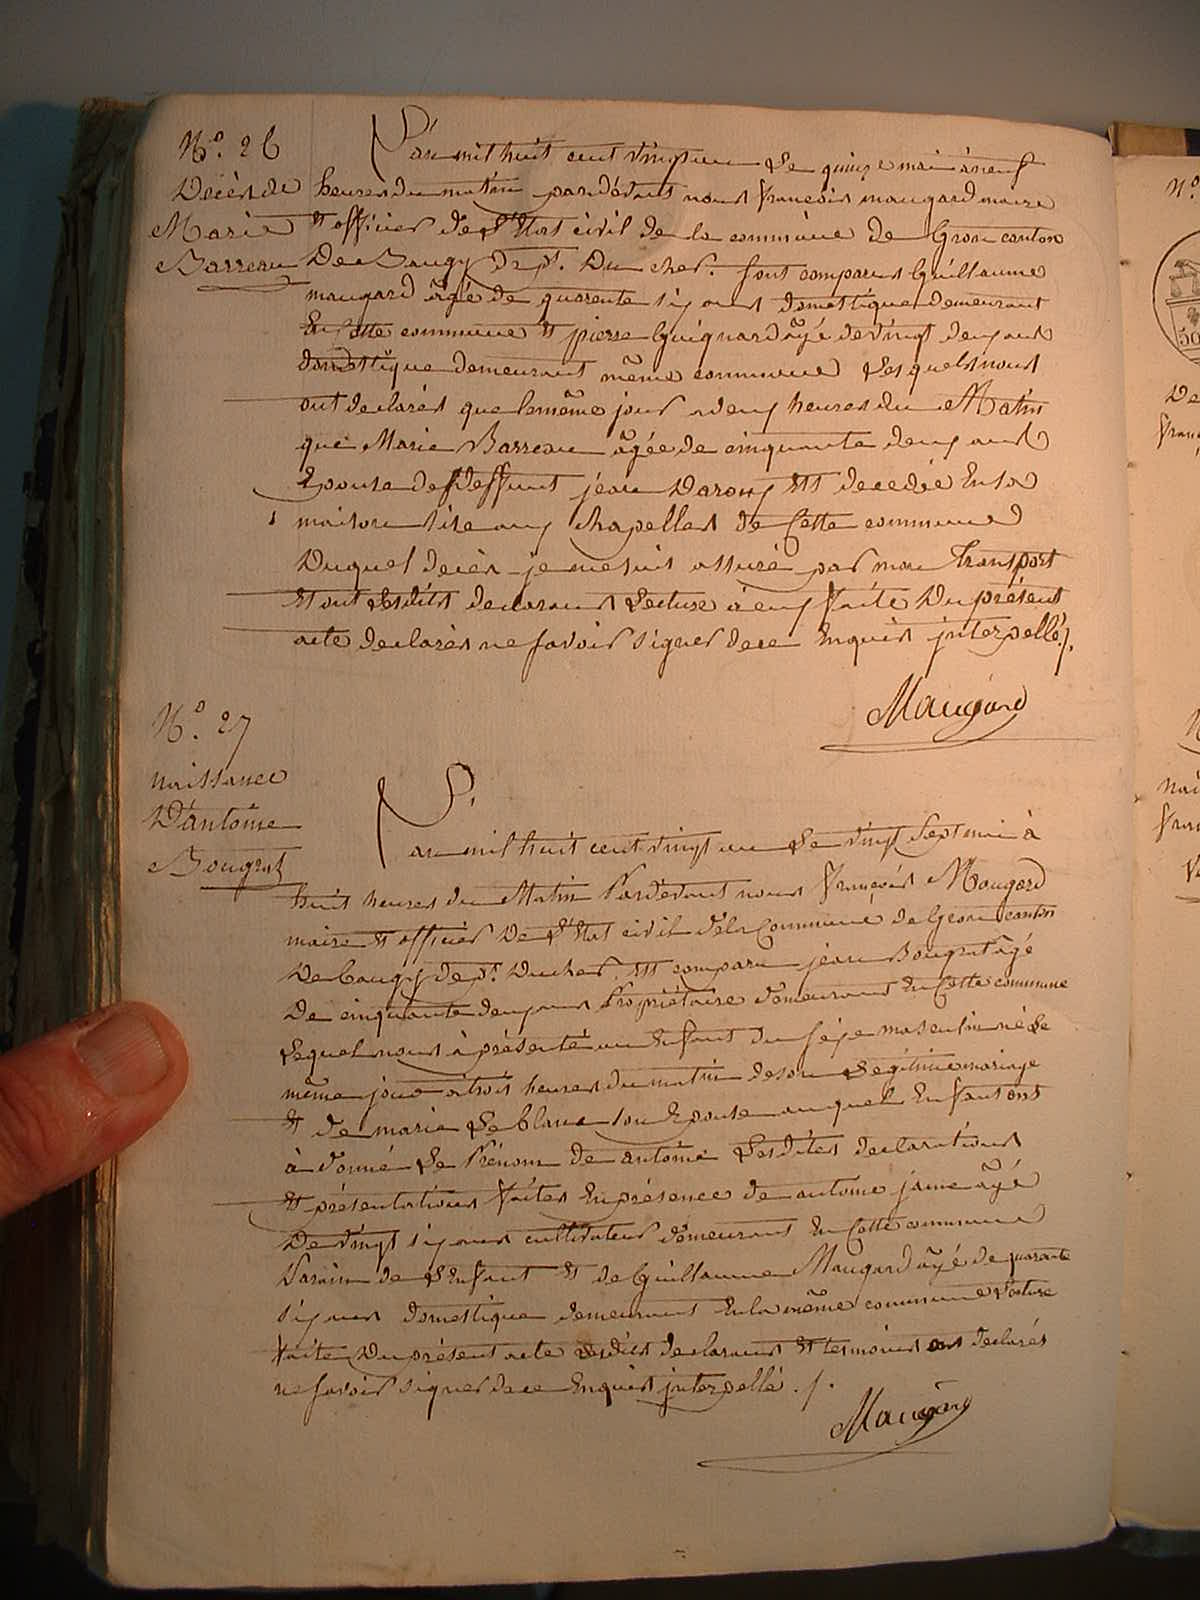 N.o 26
Decès de
Marie
Barreau
L'an mil huit cent vingt un Le quinze mai à neuf
heures du matin pardevant nous françois maugard maire
Et officier de L'Etat civil de la commune de Gron canton
De Baugy Dept. Du cher. sont comparus Guillaume
maugard âgé de quarente six ans domestique demeurant
En Cette commune Et pierre Guignard âgé de vingt deux ans
domestique demeurant même commune Lesquels nous
ont declarés que le même jour a deux heures du Matin
que Marie Barreau âgée de cinquante deux ans
Epouse de deffunt jean Daroux Est decedée En sa
maison sise aux Chapelles de Cette commune
Duquel decès je me suis assuré par mon Transport
Et ont Lesdits declarans Lecture à eux faite Du présent
acte declarés ne savoir signer de ce Enquis interpellé ./.
Maugard
N.o 27
naissance
D'antoine
Bougrat
L'an mil huit cent vingt un Le vingt Sept mai à
huit heures du Matin Pardevant nous françois Mougard
maire Et officier De L'Etat civil de la Commune de Gron canton
De baugy dept. Du cher Est comparu jean Bougrat âgé
De cinquante deux ans Propriétaire demeurant En Cette commune
Lequel nous à présenté un Enfant du sexe masculin né Le
même jour a trois heures du matin de son Légitime mariage
Et de marie Le blanc son Epouse auquel Enfant ont
à donné Le Prénom de antoine Lesdites declarations
Et présentations faites En présence de antoine jame âgé
De vingt six ans cultivateur demeurant En Cette commune
Parain de L'Enfant Et de Guillaume Maugard âgé de quarante
six ans domestique demeurant En la même commune Lecture
faite Du présent acte Lesdits declarans Et temoins ont declarés
ne savoir signer de ce Enquis interpellé ./.
Maugard
N.o
De
franç
50
nai
fran